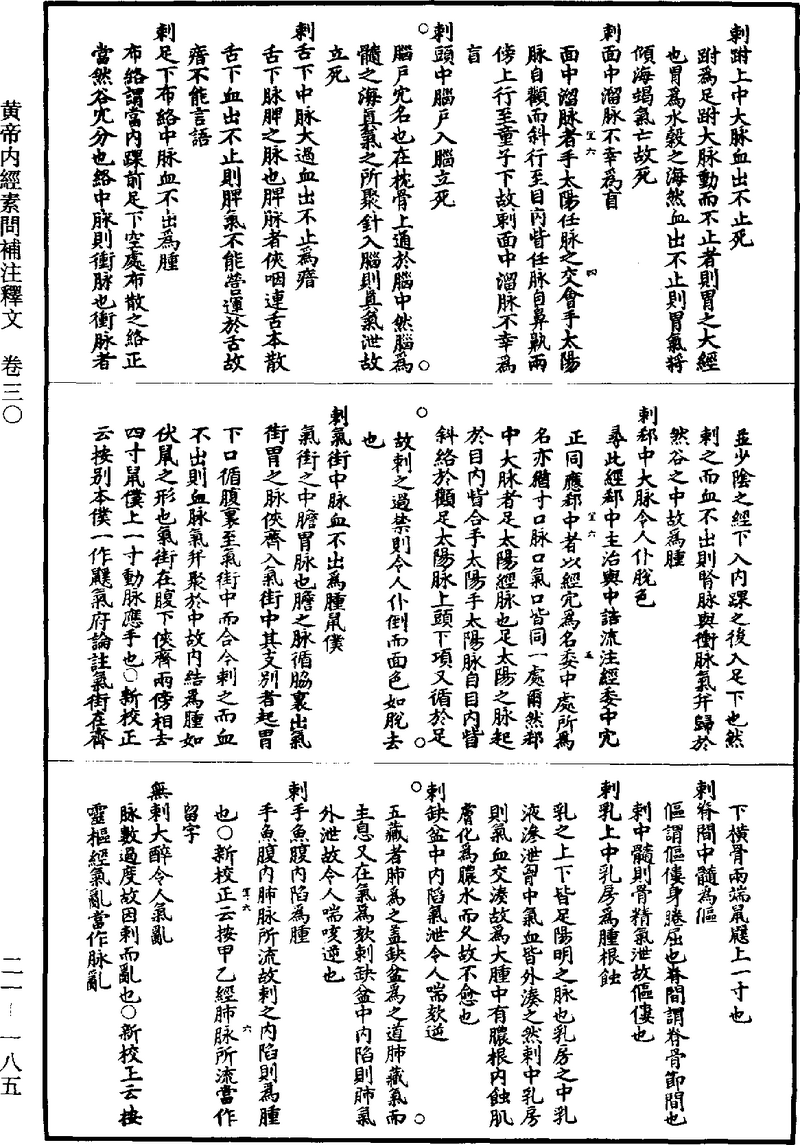 刺跗上中大脉血出不止死
跗為足跗大脉動而不止者則胃之大經
也胃為水穀之海然血出不止則胃氣將
傾海竭氣亡故死
刺面中溜脉不幸為盲
面中溜脉者手太陽任脉之交會手太陽
脉自顴而斜行至目内眥任脉自鼻鼽兩
傍上行至童子下故刺面中溜脉不幸為
盲
刺頭中腦戶入腦立死
腦戶穴名也在枕骨上通於腦中然腦為
髓之海真氣之所聚針入腦則真氣泄故
立死
刺舌下中脉大過血出不止為瘖
舌下脉脾之脉也脾脉者俠咽連舌本散
舌下血出不止則脾氣不能營運於舌故
瘖不能言語
刺足下布絡中脉血不出為腫
布絡謂當内踝前足下空處布散之絡正
當然谷穴分也絡中脉則衝脉也衝脉者
並少陰之經下入内踝之後入足下也然
刺之而血不出則腎脉與衝脉氣并歸於
然谷之中故為腫
刺郄中大脉令人仆脫色
尋此經郄中主治與中誥流注經委中穴
正同應郄中者以經穴為名委中處所為
名亦猶寸口脉口氣口皆同一處爾然郄
中大脉者足太陽經脉也足太陽之脉起
於目内眥合手太陽手太陽脉自目内眥
斜絡於顴足太陽脉上頭下項又循於足
故刺之過禁則令人仆倒而面色如脫去
也
刺氣街中脉血不出為腫鼠僕
氣街之中膽胃脉也膽之脉循脇裏出氣
街胃之脉俠齊入氣街中其支別者起胃
下口循腹裏至氣街中而合今刺之而血
不出則血脉氣并聚於中故内結為腫如
伏鼠之形也氣街在腹下俠齊兩傍相去
四寸鼠僕上一寸動脉應手也○新校正
云按別本僕一作鼷氣府論註氣街在齊
下橫骨兩端鼠鼷上一寸也
刺脊間中髓為傴
傴謂傴僂身踡屈也脊間謂脊骨節間也
刺中髓則骨精氣泄故傴僂也
刺乳上中乳房為腫根蝕
乳之上下皆足陽明之脉也乳房之中乳
液滲泄胷中氣血皆外湊之然刺中乳房
則氣血交湊故為大腫中有膿根内蝕肌
膚化為膿水而久故不愈也
刺缺盆中内陷氣泄令人喘欬逆
五藏者肺為之蓋缺盆為之道肺藏氣而
主息又在氣為欬刺缺盆中内陷則肺氣
外泄故令人喘欬逆也
刺手魚腹内陷為腫
手魚腹内肺脉所流故刺之内陷則為腫
也○新校正云按甲乙經肺脉所流當作
留字
無刺大醉令人氣亂
脉數過度故因刺而亂也○新校正云按
靈樞經氣亂當作脉亂
黄帝内經素問補注釋文 卷三○
二一—一八五